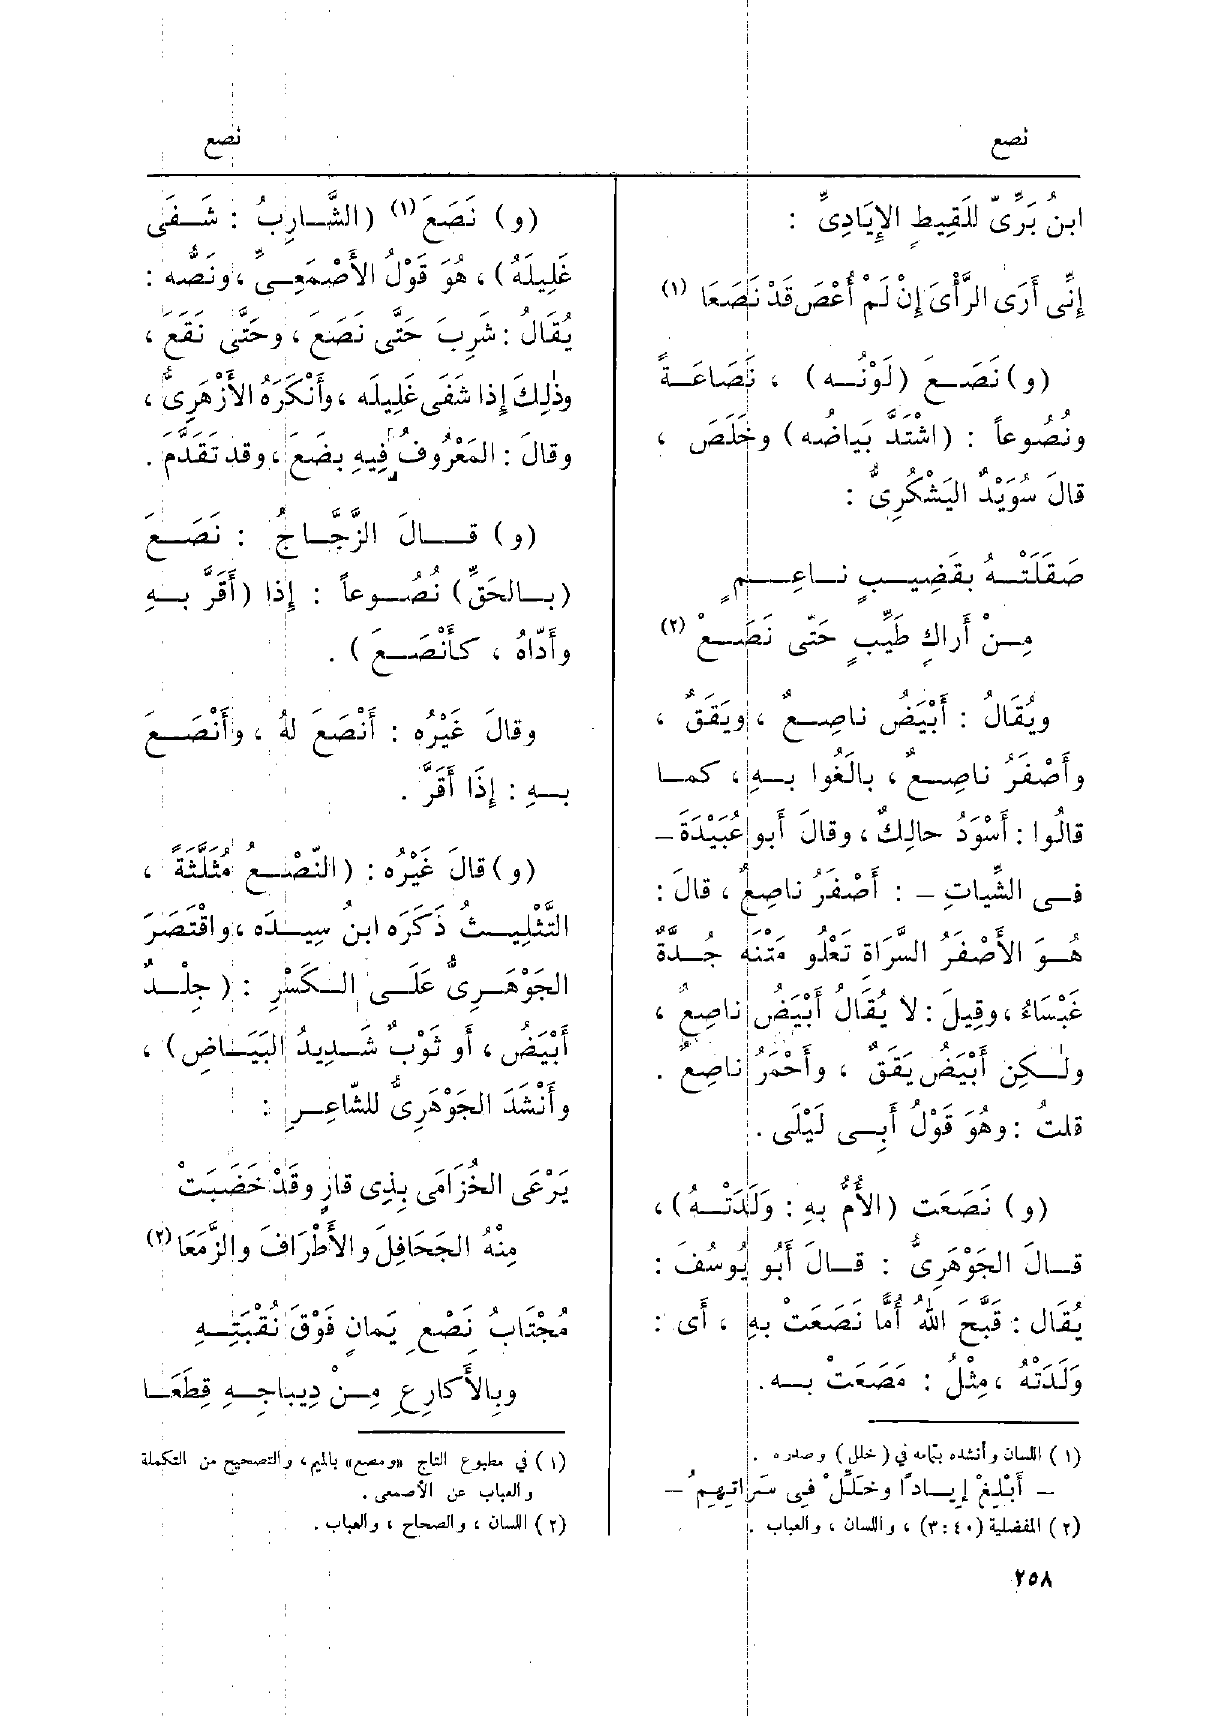 نصع
نصع
ابنُ بَرِّىّ للَقِيطٍ الإِيَادِىِّ :
إِنِّى أَرَى الرَّأْىَ إِنْ لَمْ أُعْصَ قَدْ نَصَعَا (١)
(و) نَصَـعَ (لَوْنُـه) ، نَصَاعَـةً
ونُصُوعاً : (اشْتَدَّ بَيَاضُه) وخَلَصَ ،
قالَ سُوَيْدٌ اليَشْكُرِىُّ :
صَقَلَتْـهُ بقَضِيـبٍ نـاعِـمٍ
مِـنْ أَراكٍ طَيِّبٍ حَتّى نَصَـعْ (٢)
ويُقَالُ : أَبْيَضُ ناصِـعٌ ، ويَقَقٌ ،
وأَصْفَرُ ناصِـعٌ ، بالَغُوا بـهِ ، كمـا
قالُوا : أَسْوَدُ حالِكٌ ، وقالَ أَبو عُبَيْدَةَ –
فـى الشِّياتِ – : أَصْفَرُ ناصِعٌ ، قالَ :
هُـوَ الأَصْفَرُ السَّرَاةِ تَعْلُو مَتْنَه جُـدَّةٌ
غَبْسَاءُ ، وقِيلَ : لا يُقَالُ أَبْيَضُ ناصِعٌ ،
ولٰـكِن أَبْيَضُ يَقَقٌ ، وأَحْمَرُ ناصِعٌ .
قلتُ : وهُوَ قَوْلُ أَبـى لَيْلَى .
(و) نَصَعَت (الأُمُّ بهِ : وَلَدَتْـهُ) ،
قـالَ الجَوْهَرِىُّ : قـالَ أَبُو يُوسُفَ :
يُقَال : قَبَّحَ اللهُ أُمًّا نَصَعَتْ بهِ ، أَى :
وَلَدَتْهُ ، مِثْلُ : مَصَعَتْ بـه .
(١) اللسان وأنشده بتمامه في (خلل) وصدره .
– أَبْلِغْ إِيـاداً وخَلِّلْ فى سَرَاتِهِمُ –
(٢) المفضلية (٤٠ : ٣) ، واللسان ، والعباب .
٢٥٨
(و) نَصَعَ (١) (الشَّـارِبُ : شَـفَى
غَلِيلَهُ) ، هُوَ قَوْلُ الأَصْمَعِـىِّ ، ونَصُّه :
يُقَالُ : شَرِبَ حَتَّى نَصَعَ ، وحَتَّى نَقَعَ ،
وذٰلِكَ إِذا شَفَى غَلِيلَه ، وأَنْكَرَهُ الأَزْهَرِىُّ ،
وقالَ : المَعْرُوفُ فِيهِ بَضَعَ ، وقد تَقَدَّمَ .
(و) قـالَ الزَّجَّـاجُ : نَصَـعَ
(بـالحَقِّ) نُصُـوعاً : إِذا (أَقَرَّ بـهِ
وأَدّاهُ ، كأَنْصَـعَ ) .
وقالَ غَيْرُه : أَنْصَعَ لهُ ، وأَنْصَـعَ
بـهِ : إِذَا أَقَرَّ .
(و) قالَ غَيْرُه : (النّصْـعُ مُثَلَّثَةً ،
التَّثْلِيـثُ ذَكَرَه ابنُ سِيـدَه ، واقْتَصَرَ
الجَوْهَـرِىُّ عَلَـى الـكَسْرِ : (جِلْـدٌ
أَبْيَضُ ، أَو ثَوْبٌ شَـدِيدُ البَيَـاضِ) ،
وأَنْشَدَ الجَوْهَرِىُّ للشّاعِـرِ :
يَرْعَى الخُزَامَى بِذِى قارٍ وقَدْ خَضَبَتْ
مِنْهُ الجَحافِلَ والأَطْرَافَ والزَّمَعَا (٢)
مُجْتَابُ نِصْعٍ يَمانٍ فَوْقَ نُقْبَتِـهِ
وبِالأَكارِعِ مِـنْ دِيباجِـهِ قِطَعَـا
(١) في مطبوع التاج «ومصع» بالميم، والتصحيح من التكملة
والعباب عن الأصمعى .
(٢) اللسان ، والصحاح ، والعباب .